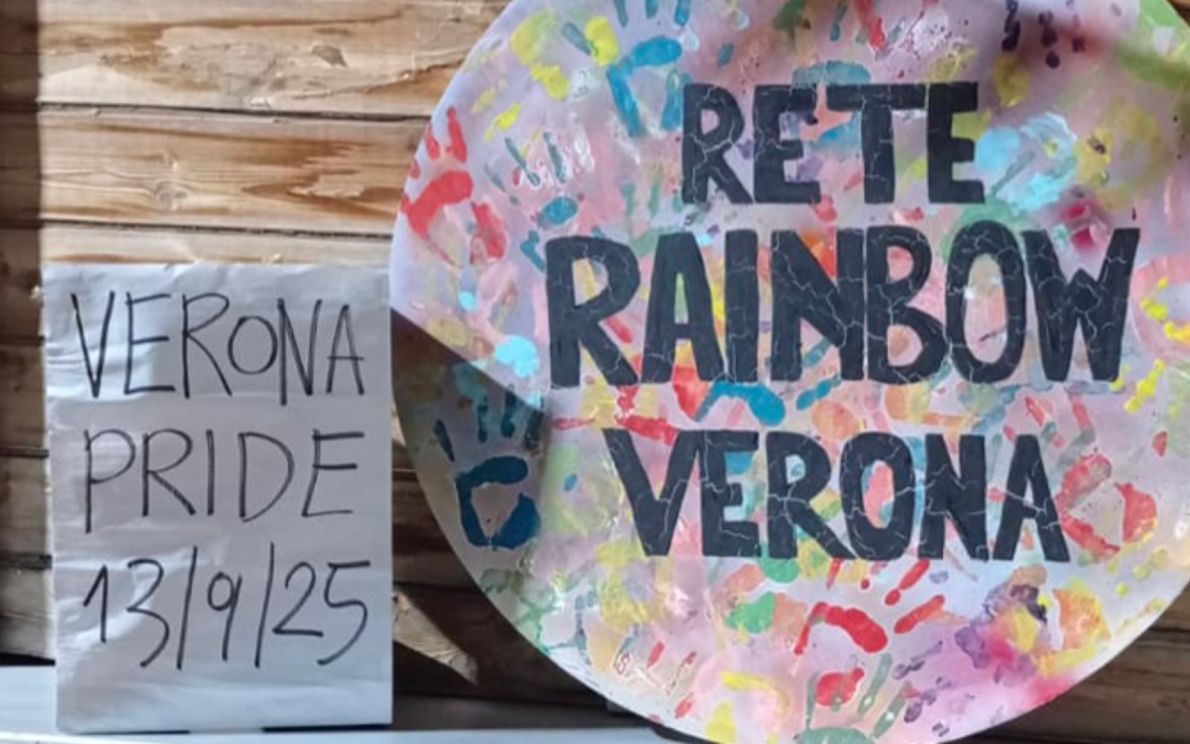 VERONA
PRIDE
13/9/25
RETE
RAINBOW
VERONA